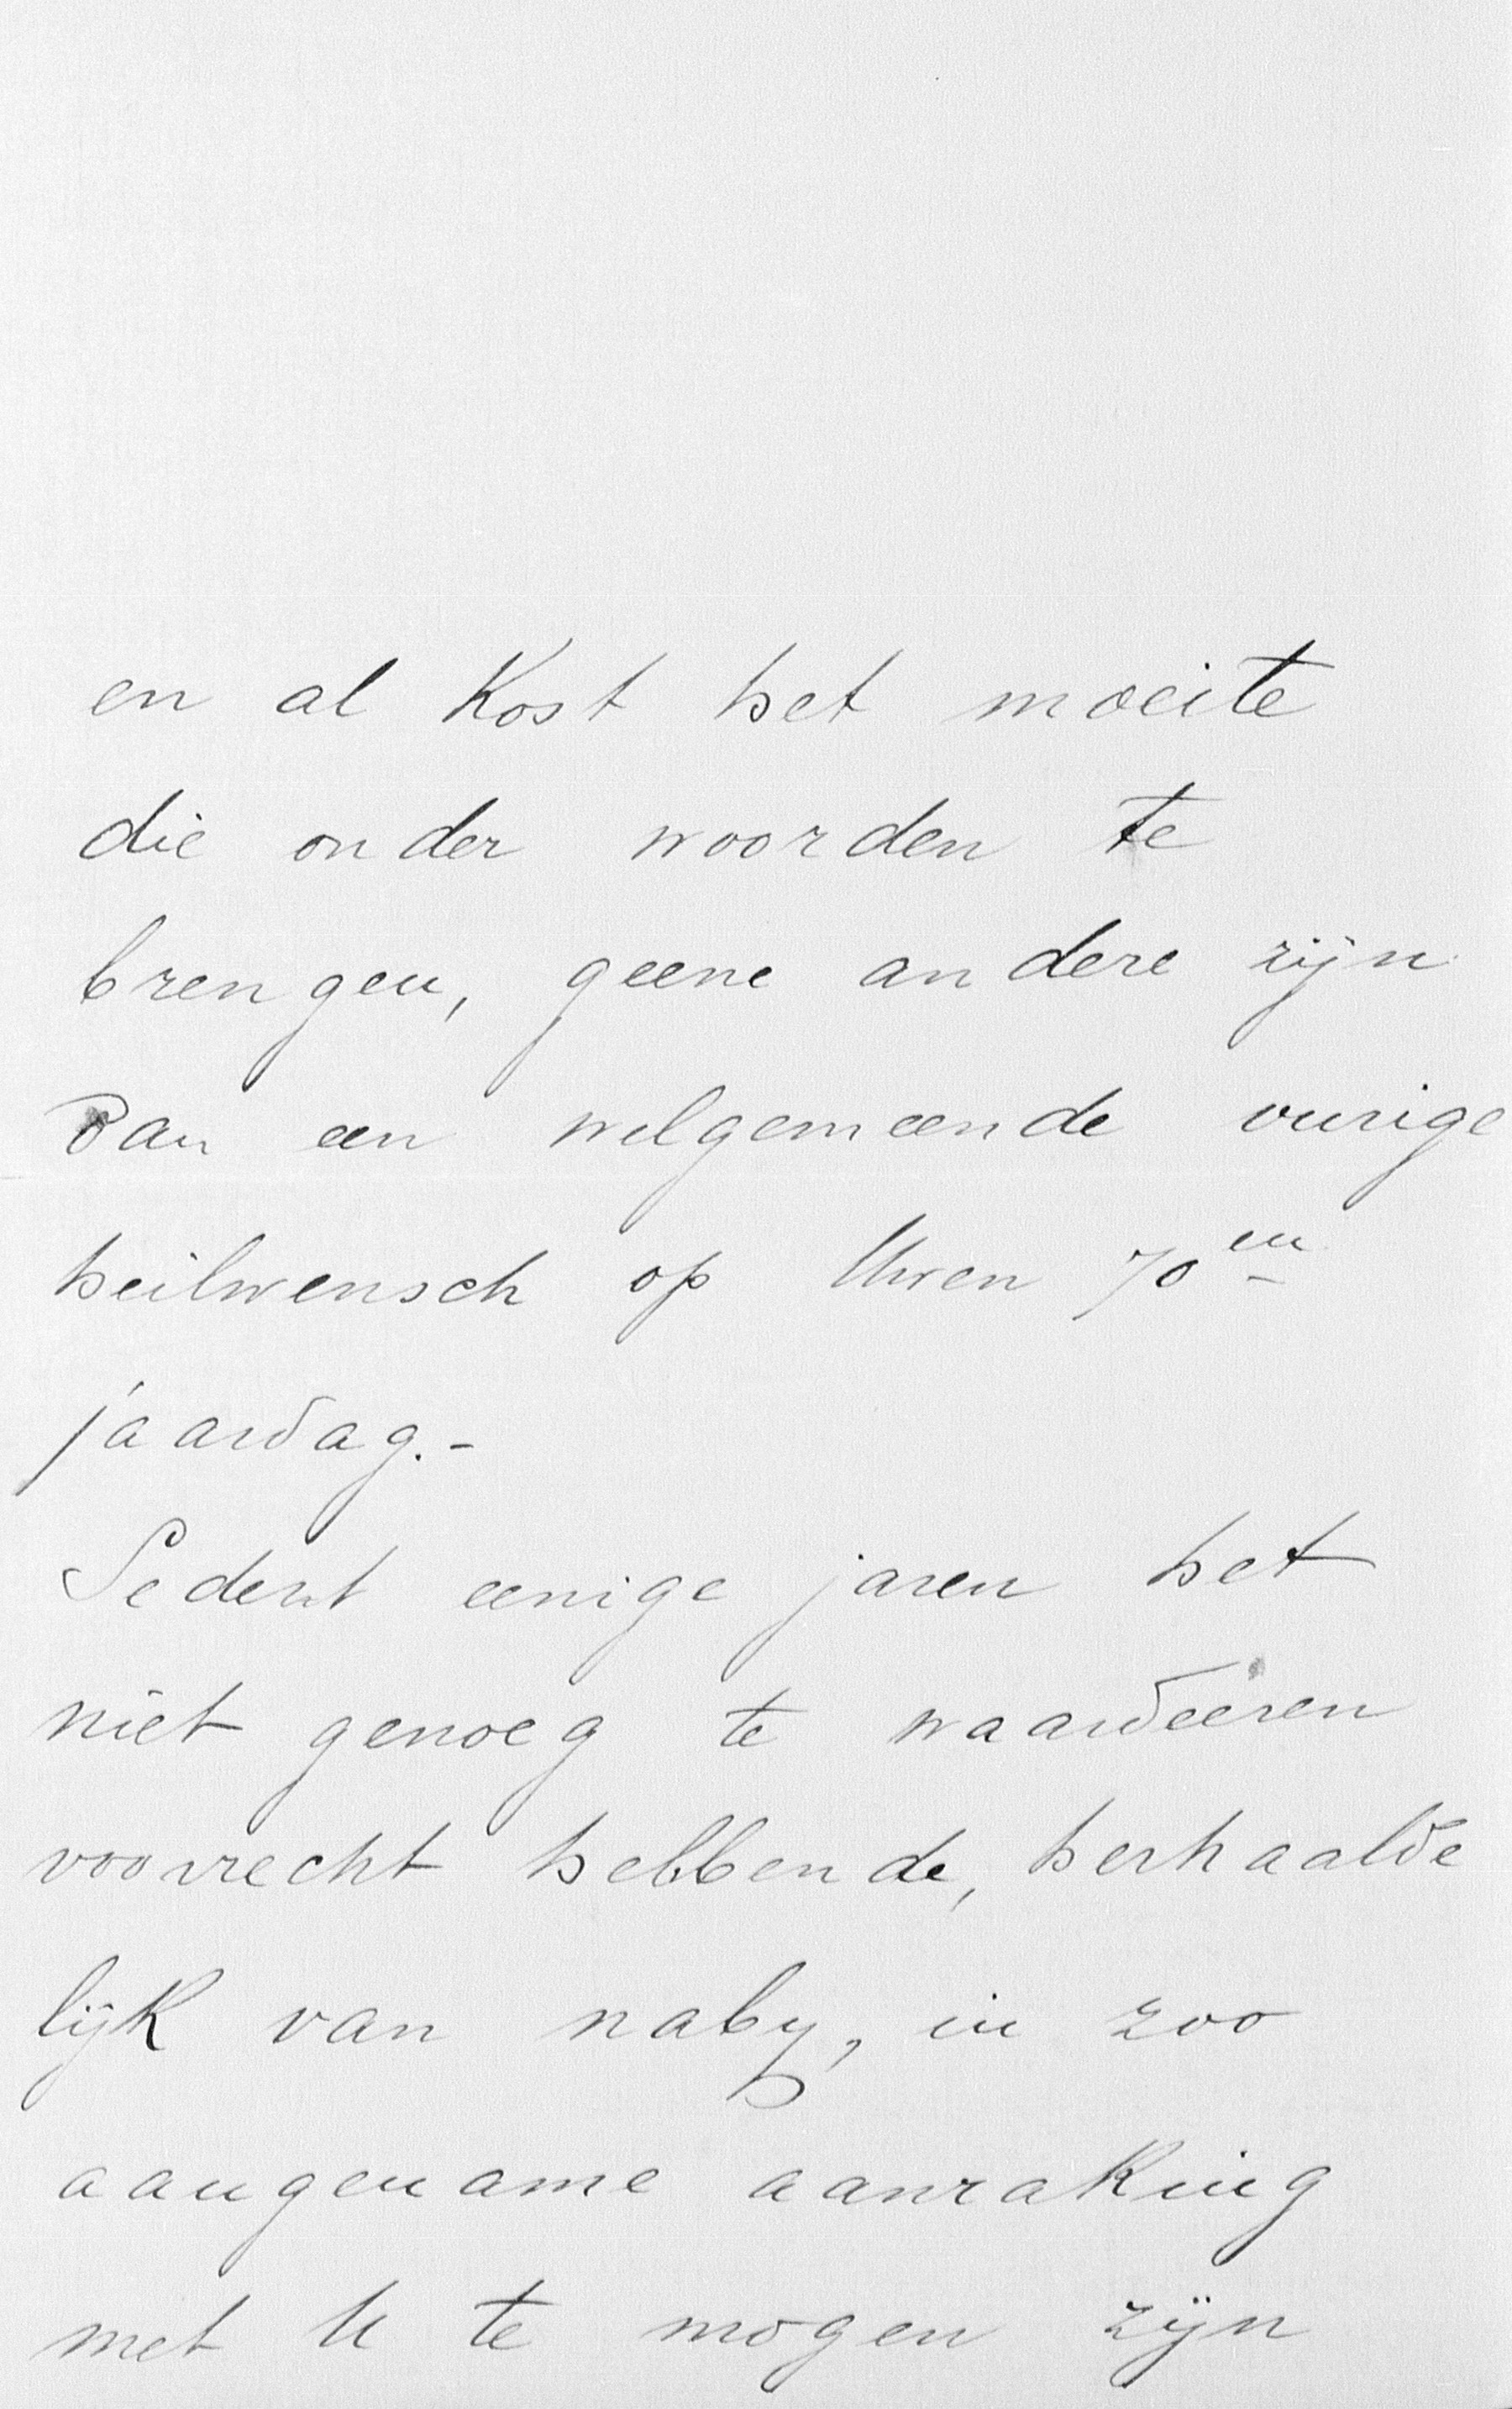 en al kost het moeite
die onder woorden te
brengen, geene andere zijn
dan een welgemeende vurige
heilwensch op Uwen 70en
jaardag.-
Sedert eenige jaren het
niet genoeg te waardeeren
voorrecht hebbende, herhaalde
lijk van naby, in zoo
aangename aanraking
met U te mogen zijn